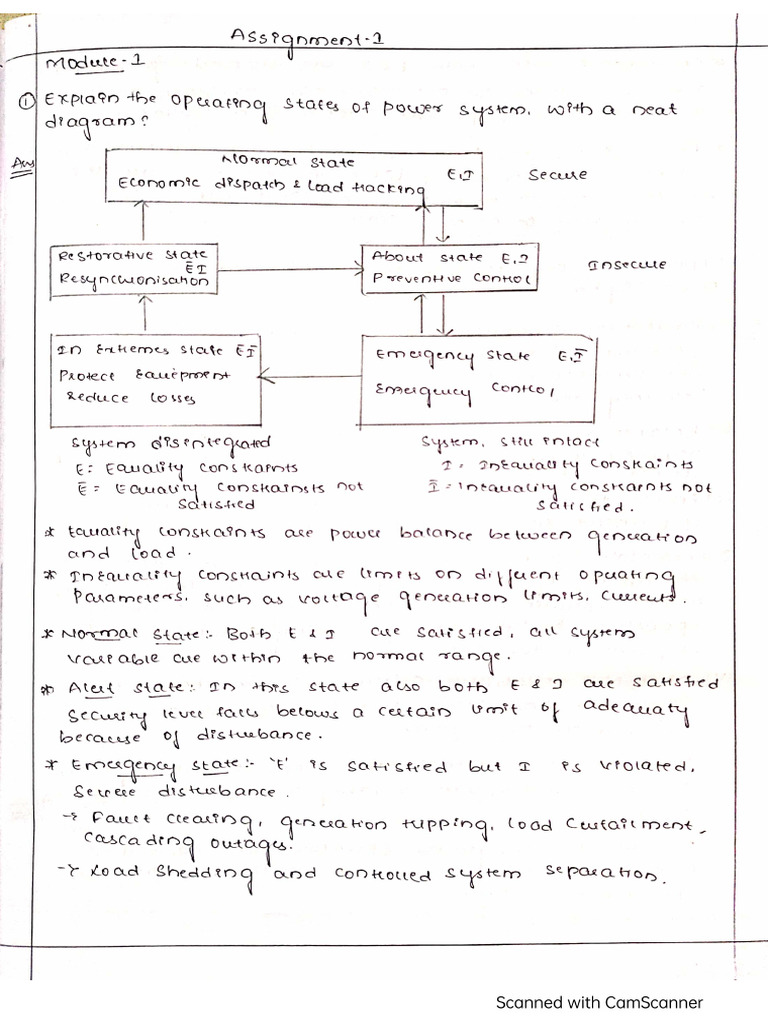 Assignment-1
Module-1
① Explain the operating states of power system, with a neat
diagram?
Ans
Normal State
Economic dispatch & Load tracking E,I
Secure
Restorative State
Ē I
Resynchronisation
About State E,I
Preventive Control
Insecure
In Extremes State Ē Ī
Protect Equipment
Reduce Losses
Emergency State E,Ī
Emergency Control
System disintegrated
E: Equality constraints
Ē = Equality constrainsts not
Satisfied
System, Still intact
I: Inequality constraints
Ī = Inequality constraints not
Satisfied.
* Equality constraints are power balance between generation
and load.
* Inequality constraints are limits on different operating
Parameters, such as voltage generation limits, currents.
* Normal State:- Both E & I are satisfied, all system
variable are within the normal range.
* Alert state:- In this state also both E & I are satisfied
Security level falls belows a certain limit of adequaty
because of disturbance.
* Emergency State:- 'E' is satisfied but I is violated,
Severe disturbance.
→ Fault clearing, generation tripping, load Curtailment,
Cascading outages.
→ Load Shedding and controlled system separation.
Scanned with CamScanner